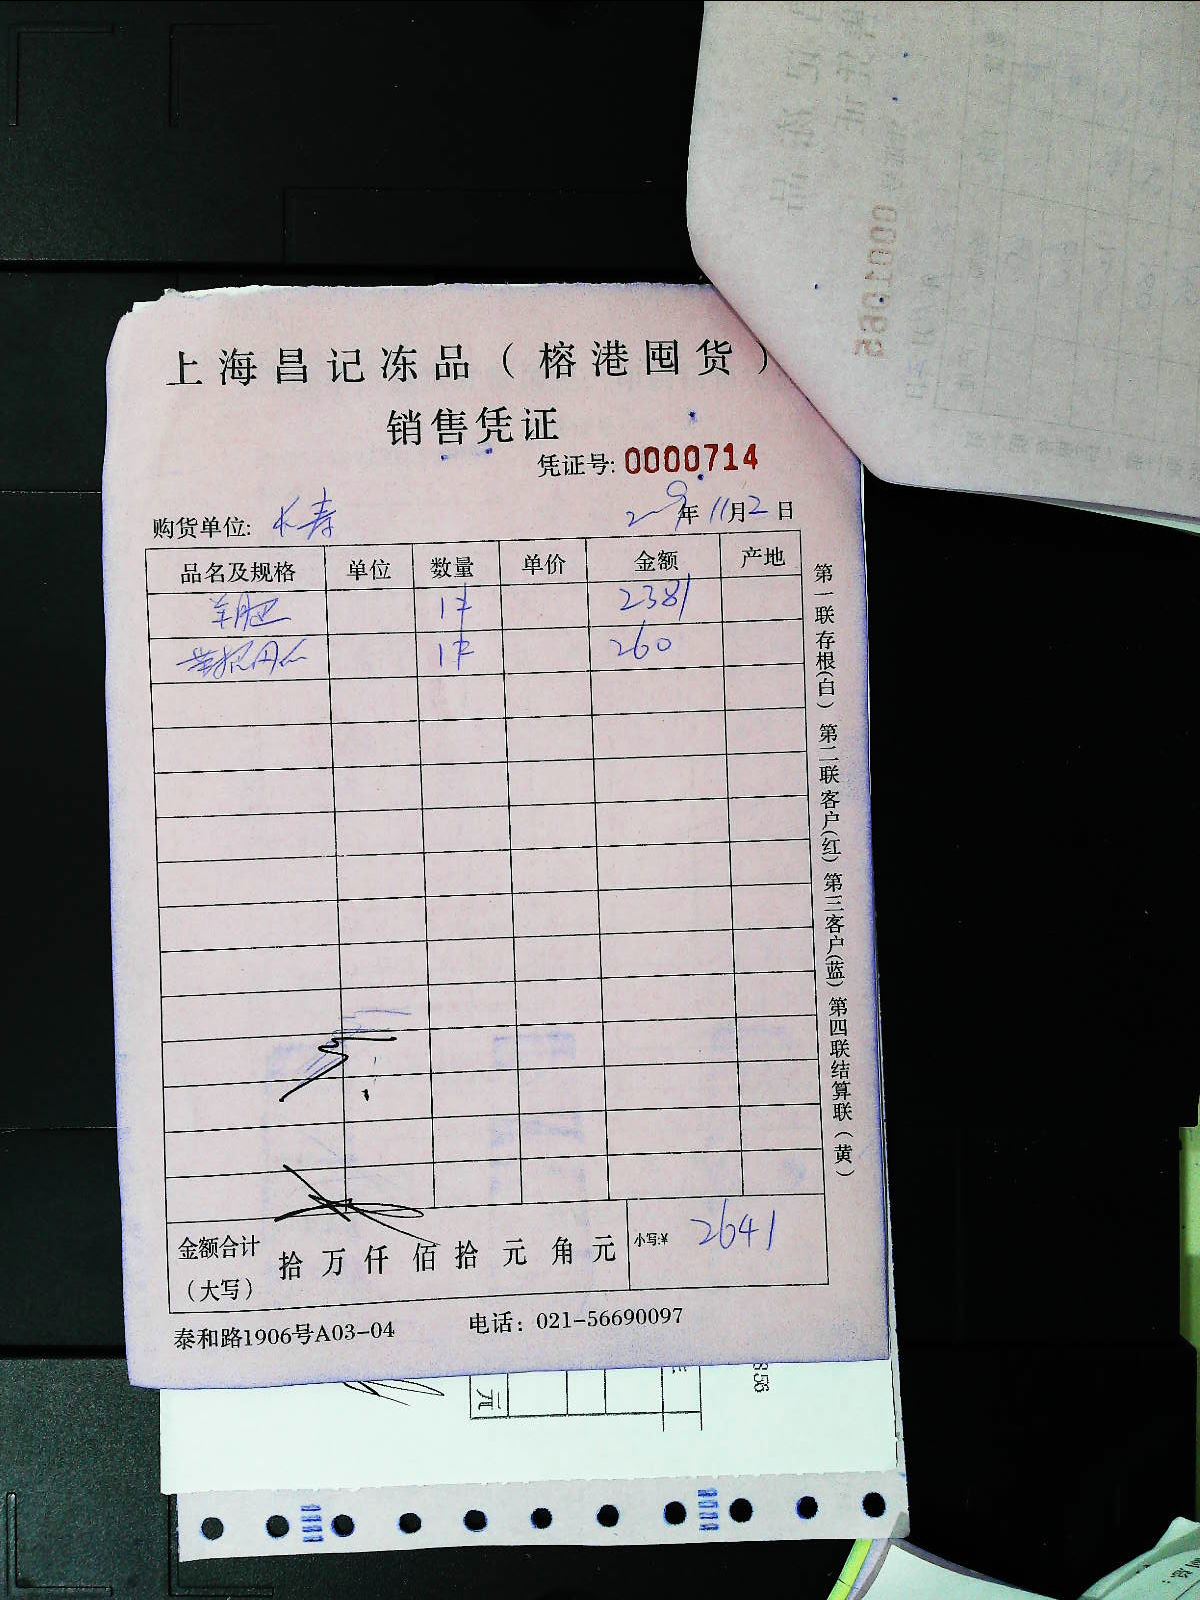 上海昌记冻品（榕港囤货）
销售凭证
凭证号: 0000714
购货单位: 长寿
年11月2日
品名及规格 单位 数量 单价 金额 产地
羊肥 1件 2381
1件 260
金额合计（大写） 拾 万 仟 佰 拾 元 角 元 小写:¥ 2641
泰和路1906号A03-04 电话：021-56690097
第一联存根(白) 第二联客户(红) 第三客户(蓝) 第四联结算联(黄)
0001065
元